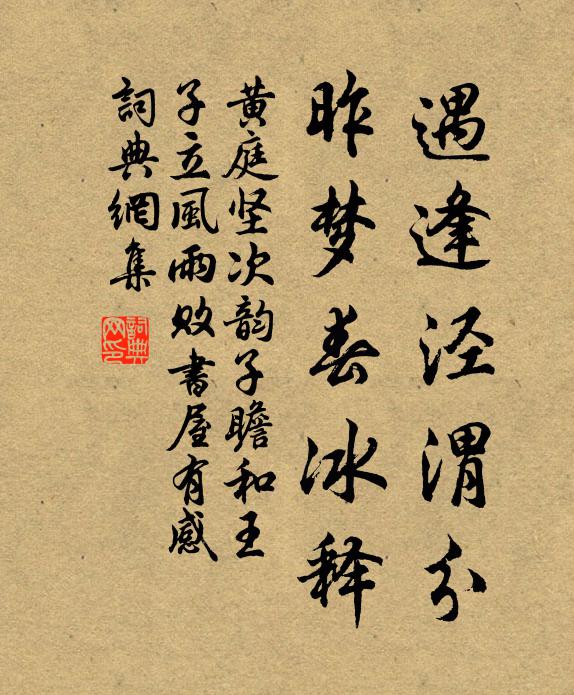 遇逢泾渭分
昨梦春冰释
黄庭坚次韵子瞻和王
子立風雨败書屋有感
詞典網集
詞典網印